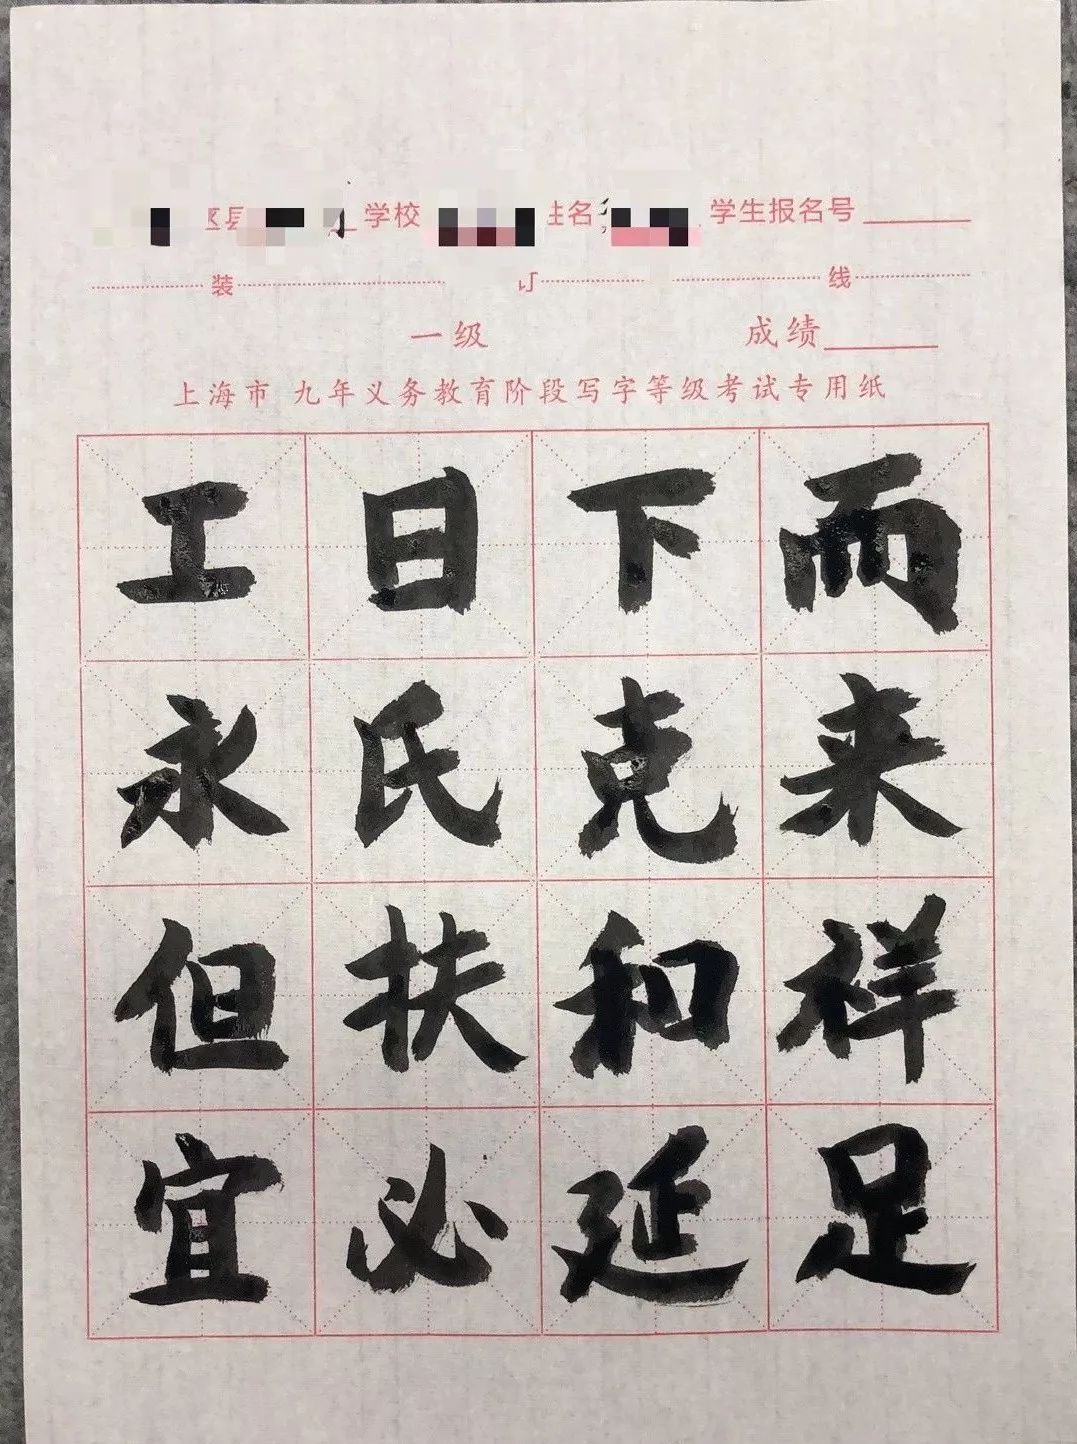 学校 名 学生报名号
装 线
一级 成绩
上海市 九年义务教育阶段写字等级考试专用纸
工日下而
永氏克来
但扶和祥
宜必延足